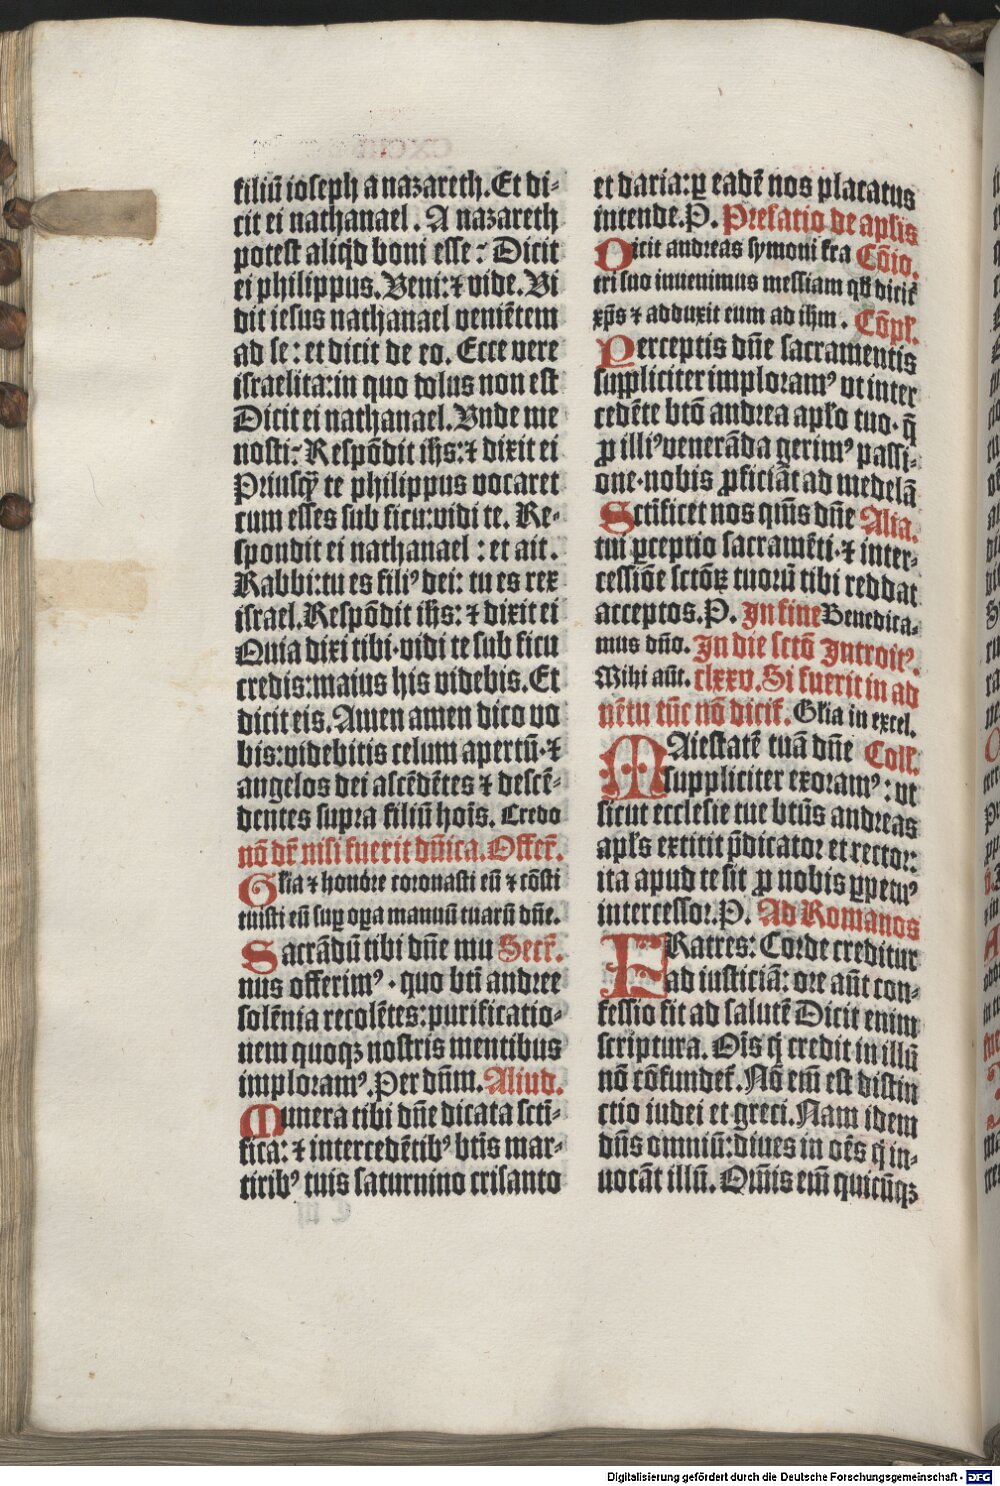 filiū ioseph a nazareth. Et di-
cit ei nathanael. A nazareth
potest aliqd boni esse: Dicit
ei philippus. Veni: ⁊ vide. Vi
dit iesus nathanael veniētem
ad se: et dicit de eo. Ecce vere
israelita: in quo dolus non est
Dicit ei nathanael. Vnde me
nosti: Respōdit ihs: ⁊ dixit ei
Priusqȝ te philippus vocaret
cum esses sub ficu: vidi te. Re-
spondit ei nathanael: et ait.
Rabbi: tu es filiꝰ dei: tu es rex
israel. Respōdit ihs: ⁊ dixit ei
Quia dixi tibi· vidi te sub ficu
credis: maius his videbis. Et
dicit eis. Amen amen dico vo
bis: videbitis celum apertū· ⁊
angelos dei ascēdētes ⁊ descē-
dentes supra filiū hoīs. Credo
nō dr̄ nisi fuerit dn̄ica. Offer̄.
Glīa ⁊ honore coronasti eū ⁊ cōsti
tuisti eū suꝑ oꝑa manuū tuarū dn̄e.
Sacrādū tibi dn̄e mu Secr̄.
nus offerimꝰ· quo bt̄i andree
solēnia recolētes: purificatio-
nem quoqȝ nostris mentibus
imploramꝰ. Per dn̄m. Aliud.
Munera tibi dn̄e dicata scti-
fica: ⁊ intercedētibꝰ bt̄is mar-
tiribꝰ tuis saturnino crisanto
et daria: ꝑ eadē nos placatus
intende. P. Prefatio de apl̄is
Dicit andreas symoni fra Cōio.
tri suo invenimus messiam qd̄ dicit̄
xp̄s ⁊ adduxit eum ad ihm. Cōpl̄.
Perceptis dn̄e sacramentis
suppliciter imploramꝰ vt inter
cedēte bt̄o andrea apl̄o tuo· q̄
ꝓ illiꝰ venerāda gerimꝰ passi-
one· nobis ꝓficiāt ad medelā
Sctificet nos qm̄s dn̄e Alia.
tui ꝑceptio sacramēti· ⁊ inter-
cessiōe sctōꝝ tuorū tibi reddat
acceptos. P. In fine Benedica-
mus dn̄o. In die sctō Introitꝰ.
Mihi aūt. clxxv. Si fuerit in ad
vētu tūc nō dicit̄. Glīa in excel.
Maiestatē tuā dn̄e Coll̄.
suppliciter exoramꝰ: vt
sicut ecclesie tue bt̄us andreas
apl̄s extitit p̄dicator et rector:
ita apud te sit ꝓ nobis ꝑpetuꝰ
intercessor. P. Ad Romanos
FRatres: Corde creditur
ad iusticiā: ore aūt con-
fessio fit ad salutē Dicit enim
scriptura. Oīs q̄ credit in illū
nō cōfundet̄. Nō em̄ est distin
ctio iudei et greci. Nam idem
dn̄s omniū: dives in oēs q̄ in-
vocāt illū. Om̄is em̄ quicūqȝ
Digitalisierung gefördert durch die Deutsche Forschungsgemeinschaft - DFG